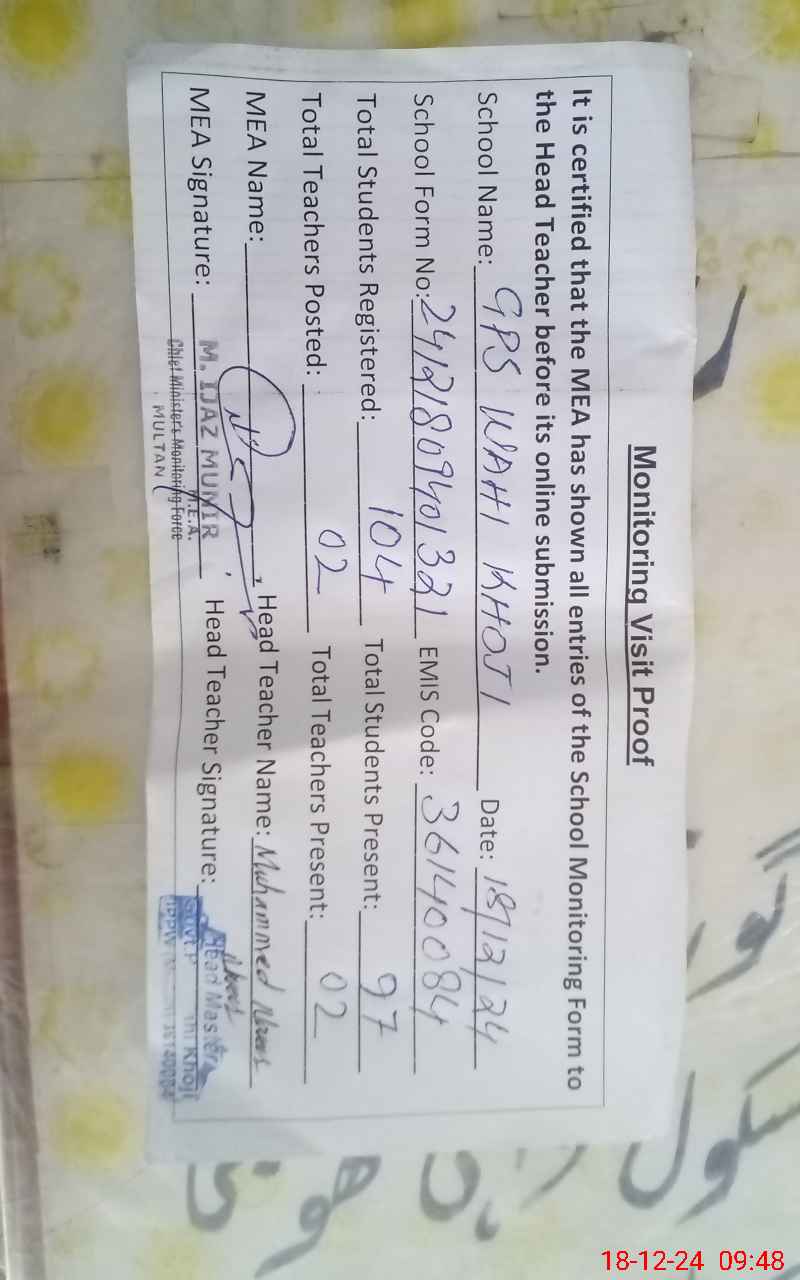 Monitoring Visit Proof
It is certified that the MEA has shown all entries of the School Monitoring Form to
the Head Teacher before its online submission.
School Name: GPS WAHI KHOJI Date: 18/12/24
School Form No: 24121809401321 EMIS Code: 36140084
Total Students Registered: 104 Total Students Present: 97
Total Teachers Posted: 02 Total Teachers Present: 02
MEA Name: Head Teacher Name: Muhammed
MEA Signature: Head Teacher Signature:
M. IJAZ MUNIR
M.E.A.
Chief Minister's Monitoring Force
MULTAN
Head Master
Govt.P Khoji
36140084
سکول
18-12-24 09:48